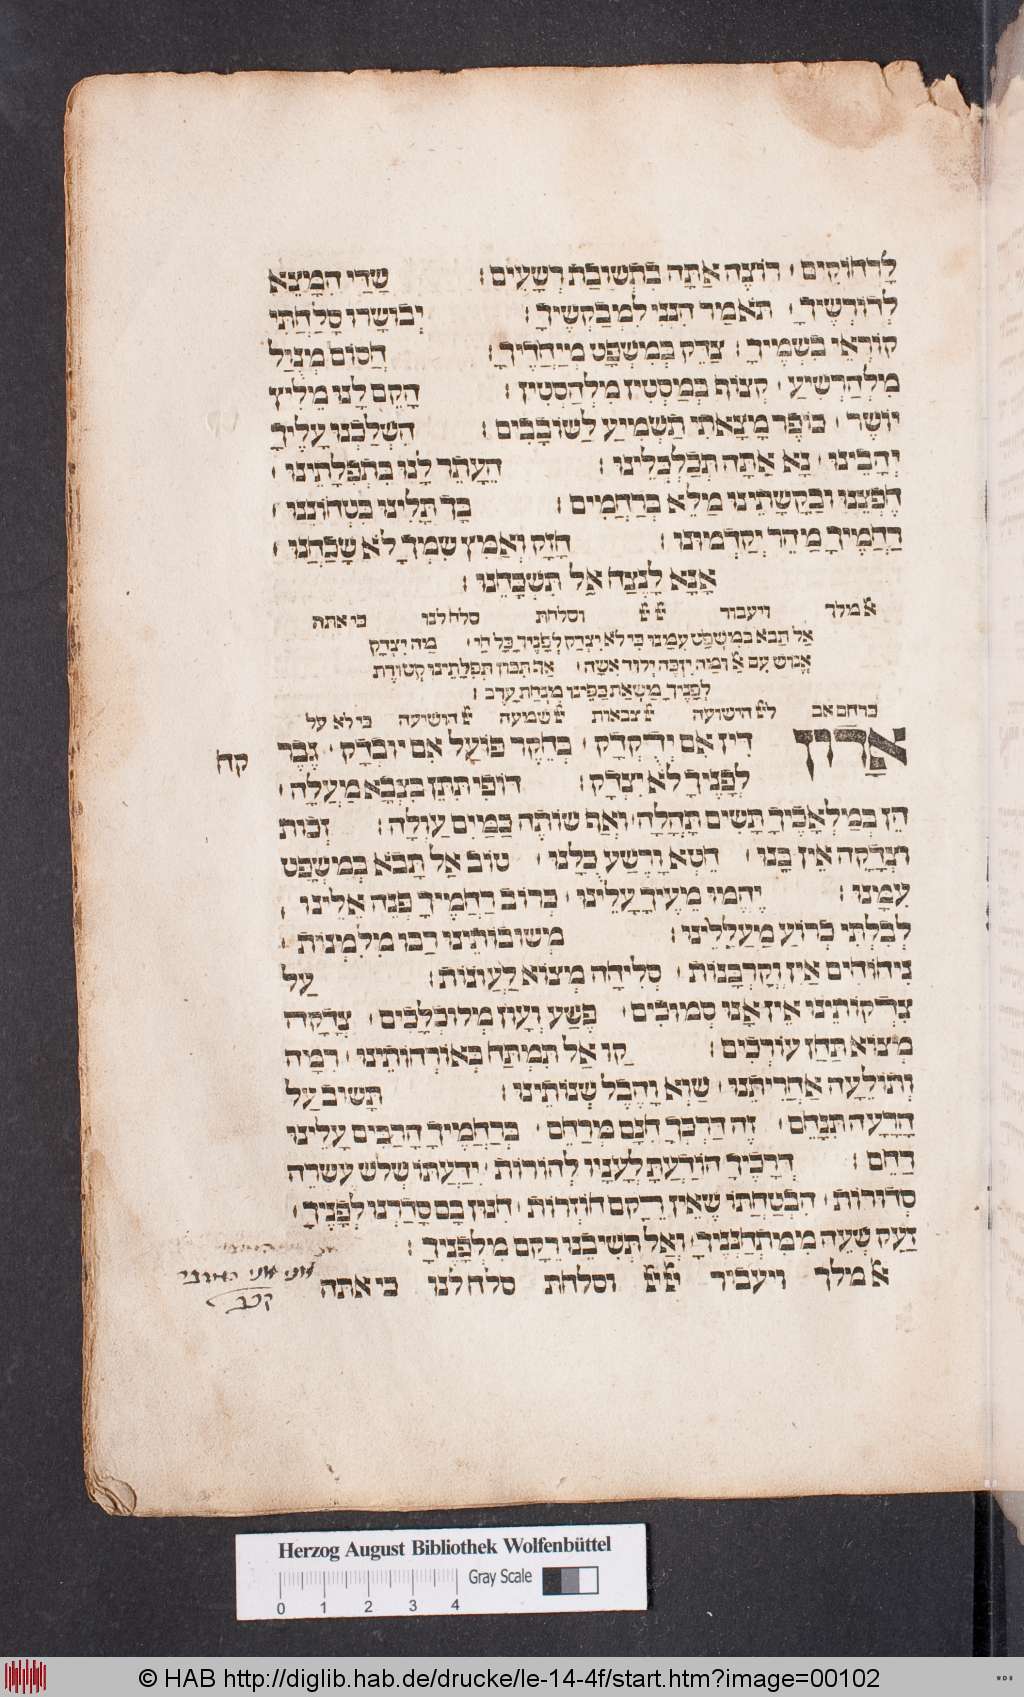 לָרְחוֹקִים׃ רוֹצֶה אַתָּה בִּתְשׁוּבַת רְשָׁעִים׃ שַׁדַּי הִמָּצֵא
לְדוֹרְשֶׁיךָ׃ תֹאמַר הִנֵּנִי לִמְבַקְשֶׁיךָ׃ יְבוּשָּׂרוּ סָלַחְתִּי
קוֹרְאֵי בְשִׁמֶךָ׃ צַדֵּק בְּמִשְׁפָּט מְיַיחֲדֶיךָ׃ הֲסוֹם מִצְיָל
מִלְהַרְשִׁיעַ׃ קְצוֹף בְּמַסְטִין מִלְהַסְטִין׃ הָקֵם לָנוּ מֵלִיץ
יוֹשֶׁר׃ כּוֹפֶר מָצָאתִי תַּשְׁמִיעַ לַשּׁוֹבָבִים׃ הִשְׁלַכְנוּ עָלֶיךָ
יְהָבֵינוּ׃ נָא אַתָּה תְכַלְכְּלֵינוּ׃ הֵעָתֵר לָנוּ בִּתְפִלָּתֵינוּ׃
חֶפְצֵנוּ וּבַקָּשָׁתֵינוּ מַלֵּא בְּרַחֲמִים׃ בָּךְ תָּלִינוּ בִּטְחוֹנֵנוּ׃
רַחֲמֶיךָ מַהֵר יְקַדְּמוּנוּ׃ חָזָק וְאַמִּיץ שִׁמְךָ לֹא שָׁכַחְנוּ׃
אָנָּא לָנֶצַח אַל תִּשְׁכָּחֵנוּ׃
אֿ מולך ויעבור יֿיֿ יֿיֿ וסלחת סלח לנו כי אתה
אַל תבֹא במִשְׁפָט עִמָּנוּ כִּי לֹא יִצְדַק לְפָנֶיךָ כָּל חַי׃ מַה יִצְדָק
אֱנוֹשׁ עִם אֿ וּמַה יִזְכֶּה יְלוּד אִשָּׁה׃ אַךְ תִּכּוֹן תְּפִלָתֵינוּ קְטוֹרֶת
לְפָנֶיךָ מַשְׂאַת כַּפֵּינוּ מִנְחַת עָרֶב׃
כרחם אב לֿיֿיֿ הישועה יֿיֿ צבאות יֿיֿ שמעה יֿיֿ הושיעה כי לא על
אָדוֹן דִּין אִם יְדֻקְדָּק׃ בְּחֵקֶר פּוֹעַל אִם יוּבְדָּק׃ גֶּבֶר
קח
לְפָנֶיךָ לֹא יִצְדָּק׃ דּוֹפִי תִתֵּן בִּצְבָא מַעְלָה׃
הֵן בְּמַלְאָכֶיךָ תָּשִׂים תָּהֳלָה׃ וְאַף שׁוֹתֶה כַמַּיִם עַוְלָה׃ זְכוּת
וּצְדָקָה אֵין בָּנוּ׃ חֵטְא וָרֶשַׁע כֻּלָּנוּ׃ טוֹב אַל תָּבֹא בְמִשְׁפָּט
עִמָּנוּ׃ יֶהֱמוּ מֵעֶיךָ עָלֵינוּ׃ בְּרוֹב רַחֲמֶיךָ פְּנֵה אֵלֵינוּ׃
לְבִלְתִּי כְּרוֹעַ מַעֲלָלֵינוּ׃ מְשׁוּבוֹתֵינוּ רַבּוּ מִלִּמְנוֹת׃
נִיחוֹחִים אַיִן וְקָרְבָּנוֹת׃ סְלִיחָה מְצוֹא לַעֲוֹנוֹת׃ עַל
צִדְקוֹתֵינוּ אֵין אָנוּ סְמוּכִים׃ פֶּשַׁע וְעָוֹן מְלוּכְלָכִים׃ צְדָקָה
מְצוֹא תַחַן עוֹרְכִים׃ קַו אַל תִּמְתַּח בְּאוֹרְחוֹתֵינוּ׃ רִמָּה
וְתוֹלֵעָה אַחֲרִיתֵנוּ׃ שָׁוְא וָהֶבֶל שְׁנוֹתֵינוּ׃ תָּשׁוּב עַל
הָרָעָה תִּנָּחֵם׃ זֶה דַרְכְּךָ חִנָּם מְרַחֵם׃ בְּרַחֲמֶיךָ הָרַבִּים עָלֵינוּ
רַחֵם׃ דְּרָכֶיךָ הוֹדַעְתָּ לֶעָנָיו לְהוֹרוֹת׃ יִדַּעְתּוֹ שְׁלֹשׁ עֶשְׂרֵה
סְדוּרוֹת׃ הִבְטַחְתּוֹ שֶׁאֵין רֵיקָם חוֹזְרוֹת׃ חִנּוּן בָּם סָדַרְנוּ לְפָנֶיךָ׃
זַעַק שְׁעֵה מִמִּתְחַנְּנֶיךָ׃ וְאַל תְּשִׁיבֵנוּ רֵיקָם מִלְּפָנֶיךָ׃
אֿ מולך ויעבור יֿיֿ יֿיֿ וסלחת סלח לנו כי אתה
Herzog August Bibliothek Wolfenbüttel
Gray Scale
0 1 2 3 4
© HAB http://diglib.hab.de/drucke/le-14-4f/start.htm?image=00102